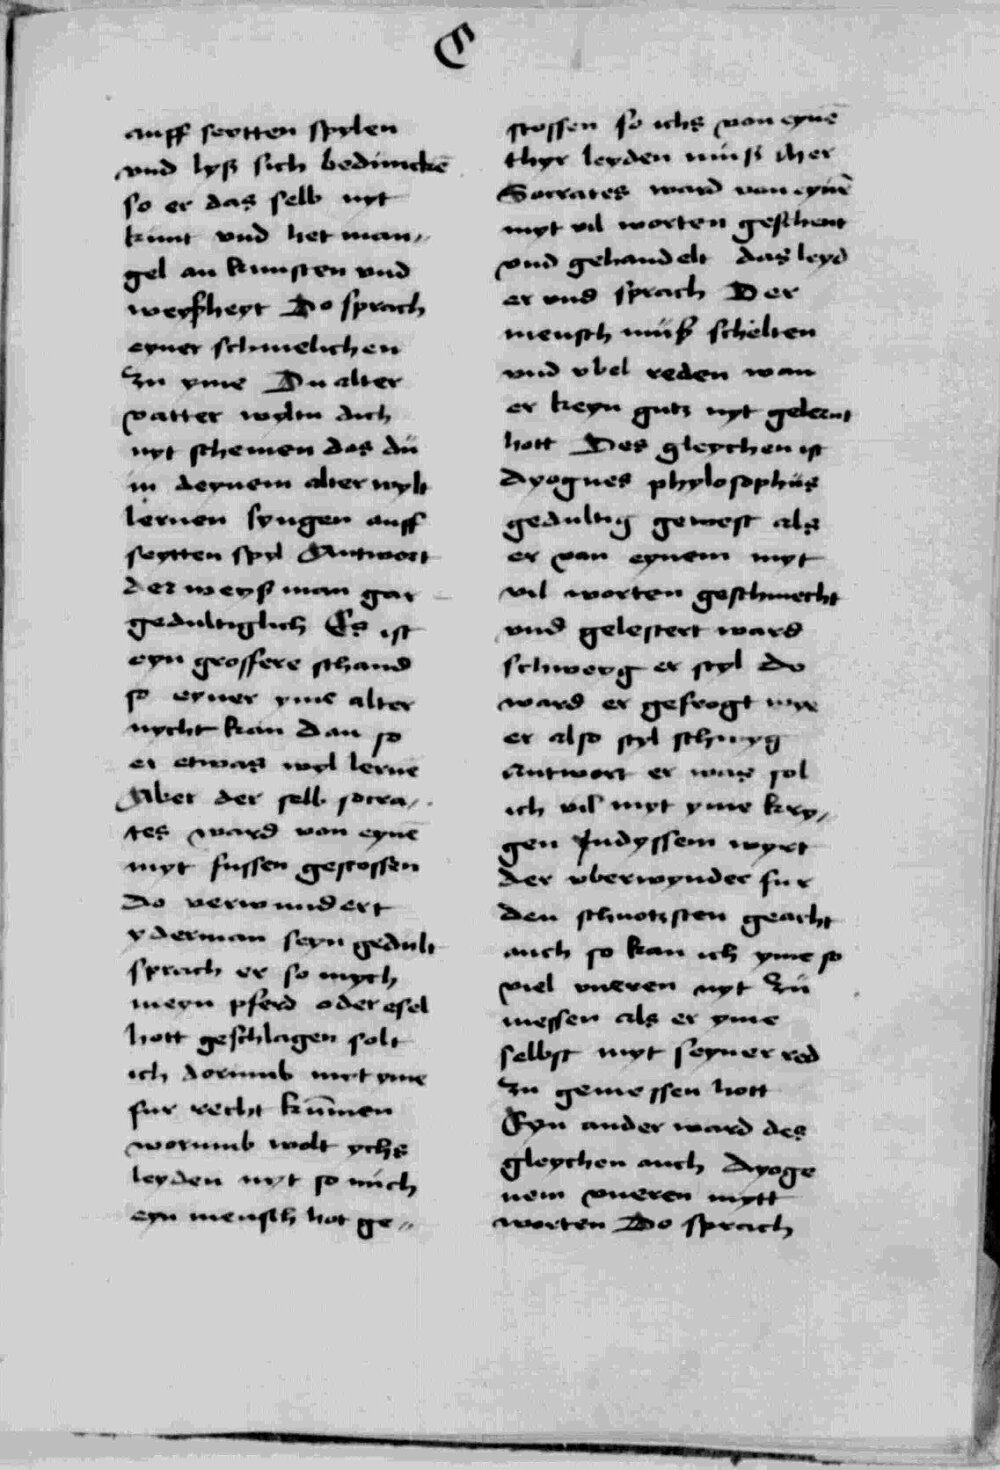 auff seytten spylen
vnd lyß sich bedüncke͂
so er das selb nyt
kunt vnd het man„
gel an kunsten vnd
weyßheyt Do sprach
eyner schmelichen
zu yme Du alter
vatter wyltu dich
nyt schemen das dü
in deynem alter wylt
lernen syngen auff
seytten spyl Antwort
der weyß man gar
gedultiglich Es ist
eyn grossere schand
so eyner yme alter
nycht kan dan so
er etwas wyl lerne͂
Aber der selb socra„
tes ward von eyne͂
myt fussen gestossen
do verwundert
yderman seyn gedult
sprach er so mych
meyn pferd oder esel
hott geschlagen solt
ich dorumb myt yme
fur recht kum̄en
worumb wolt ychs
leyden nyt so mich
eyn mensch hot ge„
stossen so ichs von eyne͂
thyr leyden müß
Socrates ward von eyne͂
myt vil worten geschent
vnd gehandelt das leyd
er vnd sprach Der
mensch müß schelten
vnd vbel reden wan
er keyn gutz nyt gelernt
hott Des gleychen ist
dyognes phylosophüs
gedultig gewest als
er van eynem myt
vil worten geschmecht
vnd gelestert ward
schweyg er styl do
ward er gefrogt wye
er also styl schwyg
Antwort er was sol
ich vil myt yme kry„
gen Indyssem wyrt
der vberwynder fur
den schnotzsten geacht
auch so kan ich yme so
viel vneren nyt zü
messen als er yme
selbst myt seyner red
zu gemessen hott
Eyn ander ward des
gleychen auch dyoge
nem vneren mytt
worten Do sprach